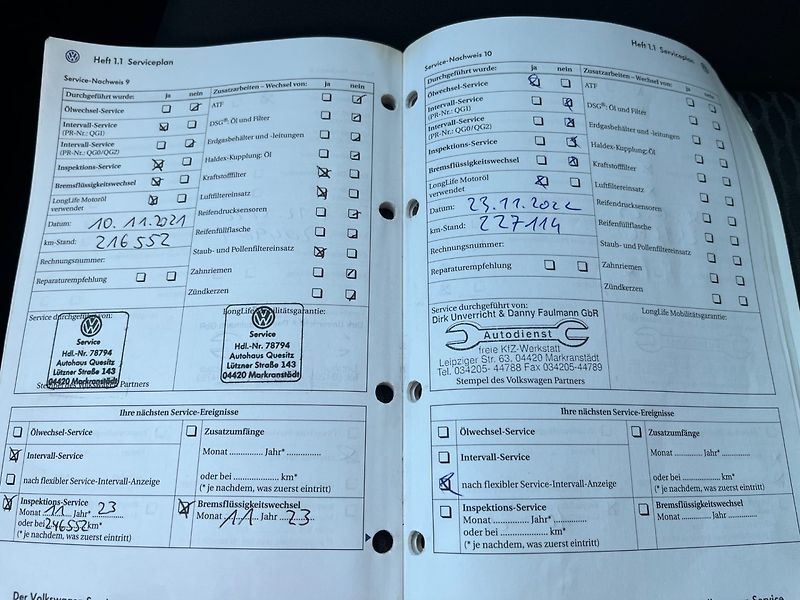 Heft 1.1 Serviceplan
Service-Nachweis 9
Durchgeführt wurde: ja nein
Ölwechsel-Service
Intervall-Service
(PR-Nr.: QG1)
Intervall-Service
(PR-Nr.: QG0/QG2)
Inspektions-Service
Bremsflüssigkeitswechsel
LongLife Motoröl
verwendet
Datum: 10.11.2021
km-Stand: 216552
Rechnungsnummer:
Reparaturempfehlung
Zusatzarbeiten – Wechsel von: ja nein
ATF
DSG®: Öl und Filter
Erdgasbehälter und -leitungen
Haldex-Kupplung: Öl
Kraftstofffilter
Luftfiltereinsatz
Reifendrucksensoren
Reifenfüllflasche
Staub- und Pollenfiltereinsatz
Zahnriemen
Zündkerzen
Service durchgeführt von:
Service
Hdl.-Nr. 78794
Autohaus Quesitz
Lützner Straße 143
04420 Markranstädt
Stempel des Volkswagen Partners
LongLife Mobilitätsgarantie:
Service
Hdl.-Nr. 78794
Autohaus Quesitz
Lützner Straße 143
04420 Markranstädt
Ihre nächsten Service-Ereignisse
Ölwechsel-Service
Intervall-Service
nach flexibler Service-Intervall-Anzeige
Zusatzumfänge
Monat ............. Jahr* .............
oder bei ............. km*
(* je nachdem, was zuerst eintritt)
Inspektions-Service
Monat 11 Jahr* 23
oder bei 246552 km*
(* je nachdem, was zuerst eintritt)
Bremsflüssigkeitswechsel
Monat 11 Jahr 23
Heft 1.1 Serviceplan
Service-Nachweis 10
Durchgeführt wurde: ja nein
Ölwechsel-Service
Intervall-Service
(PR-Nr.: QG1)
Intervall-Service
(PR-Nr.: QG0/QG2)
Inspektions-Service
Bremsflüssigkeitswechsel
LongLife Motoröl
verwendet
Datum: 23.11.2022
km-Stand: 227114
Rechnungsnummer:
Reparaturempfehlung
Zusatzarbeiten – Wechsel von: ja nein
ATF
DSG®: Öl und Filter
Erdgasbehälter und -leitungen
Haldex-Kupplung: Öl
Kraftstofffilter
Luftfiltereinsatz
Reifendrucksensoren
Reifenfüllflasche
Staub- und Pollenfiltereinsatz
Zahnriemen
Zündkerzen
Service durchgeführt von:
LongLife Mobilitätsgarantie:
Dirk Unverricht & Danny Faulmann GbR
Autodienst
freie KfZ-Werkstatt
Leipziger Str. 63, 04420 Markranstädt
Tel. 034205- 44788 Fax 034205-44789
Stempel des Volkswagen Partners
Ihre nächsten Service-Ereignisse
Ölwechsel-Service
Intervall-Service
nach flexibler Service-Intervall-Anzeige
Zusatzumfänge
Monat ............. Jahr* .............
oder bei ............. km*
(* je nachdem, was zuerst eintritt)
Inspektions-Service
Monat ............. Jahr* .............
oder bei ............. km*
(* je nachdem, was zuerst eintritt)
Bremsflüssigkeitswechsel
Monat ............. Jahr .............
Der Volkswagen